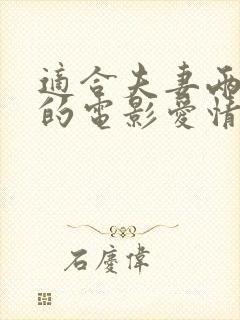 適合夫妻兩
的電影愛情
石慶偉